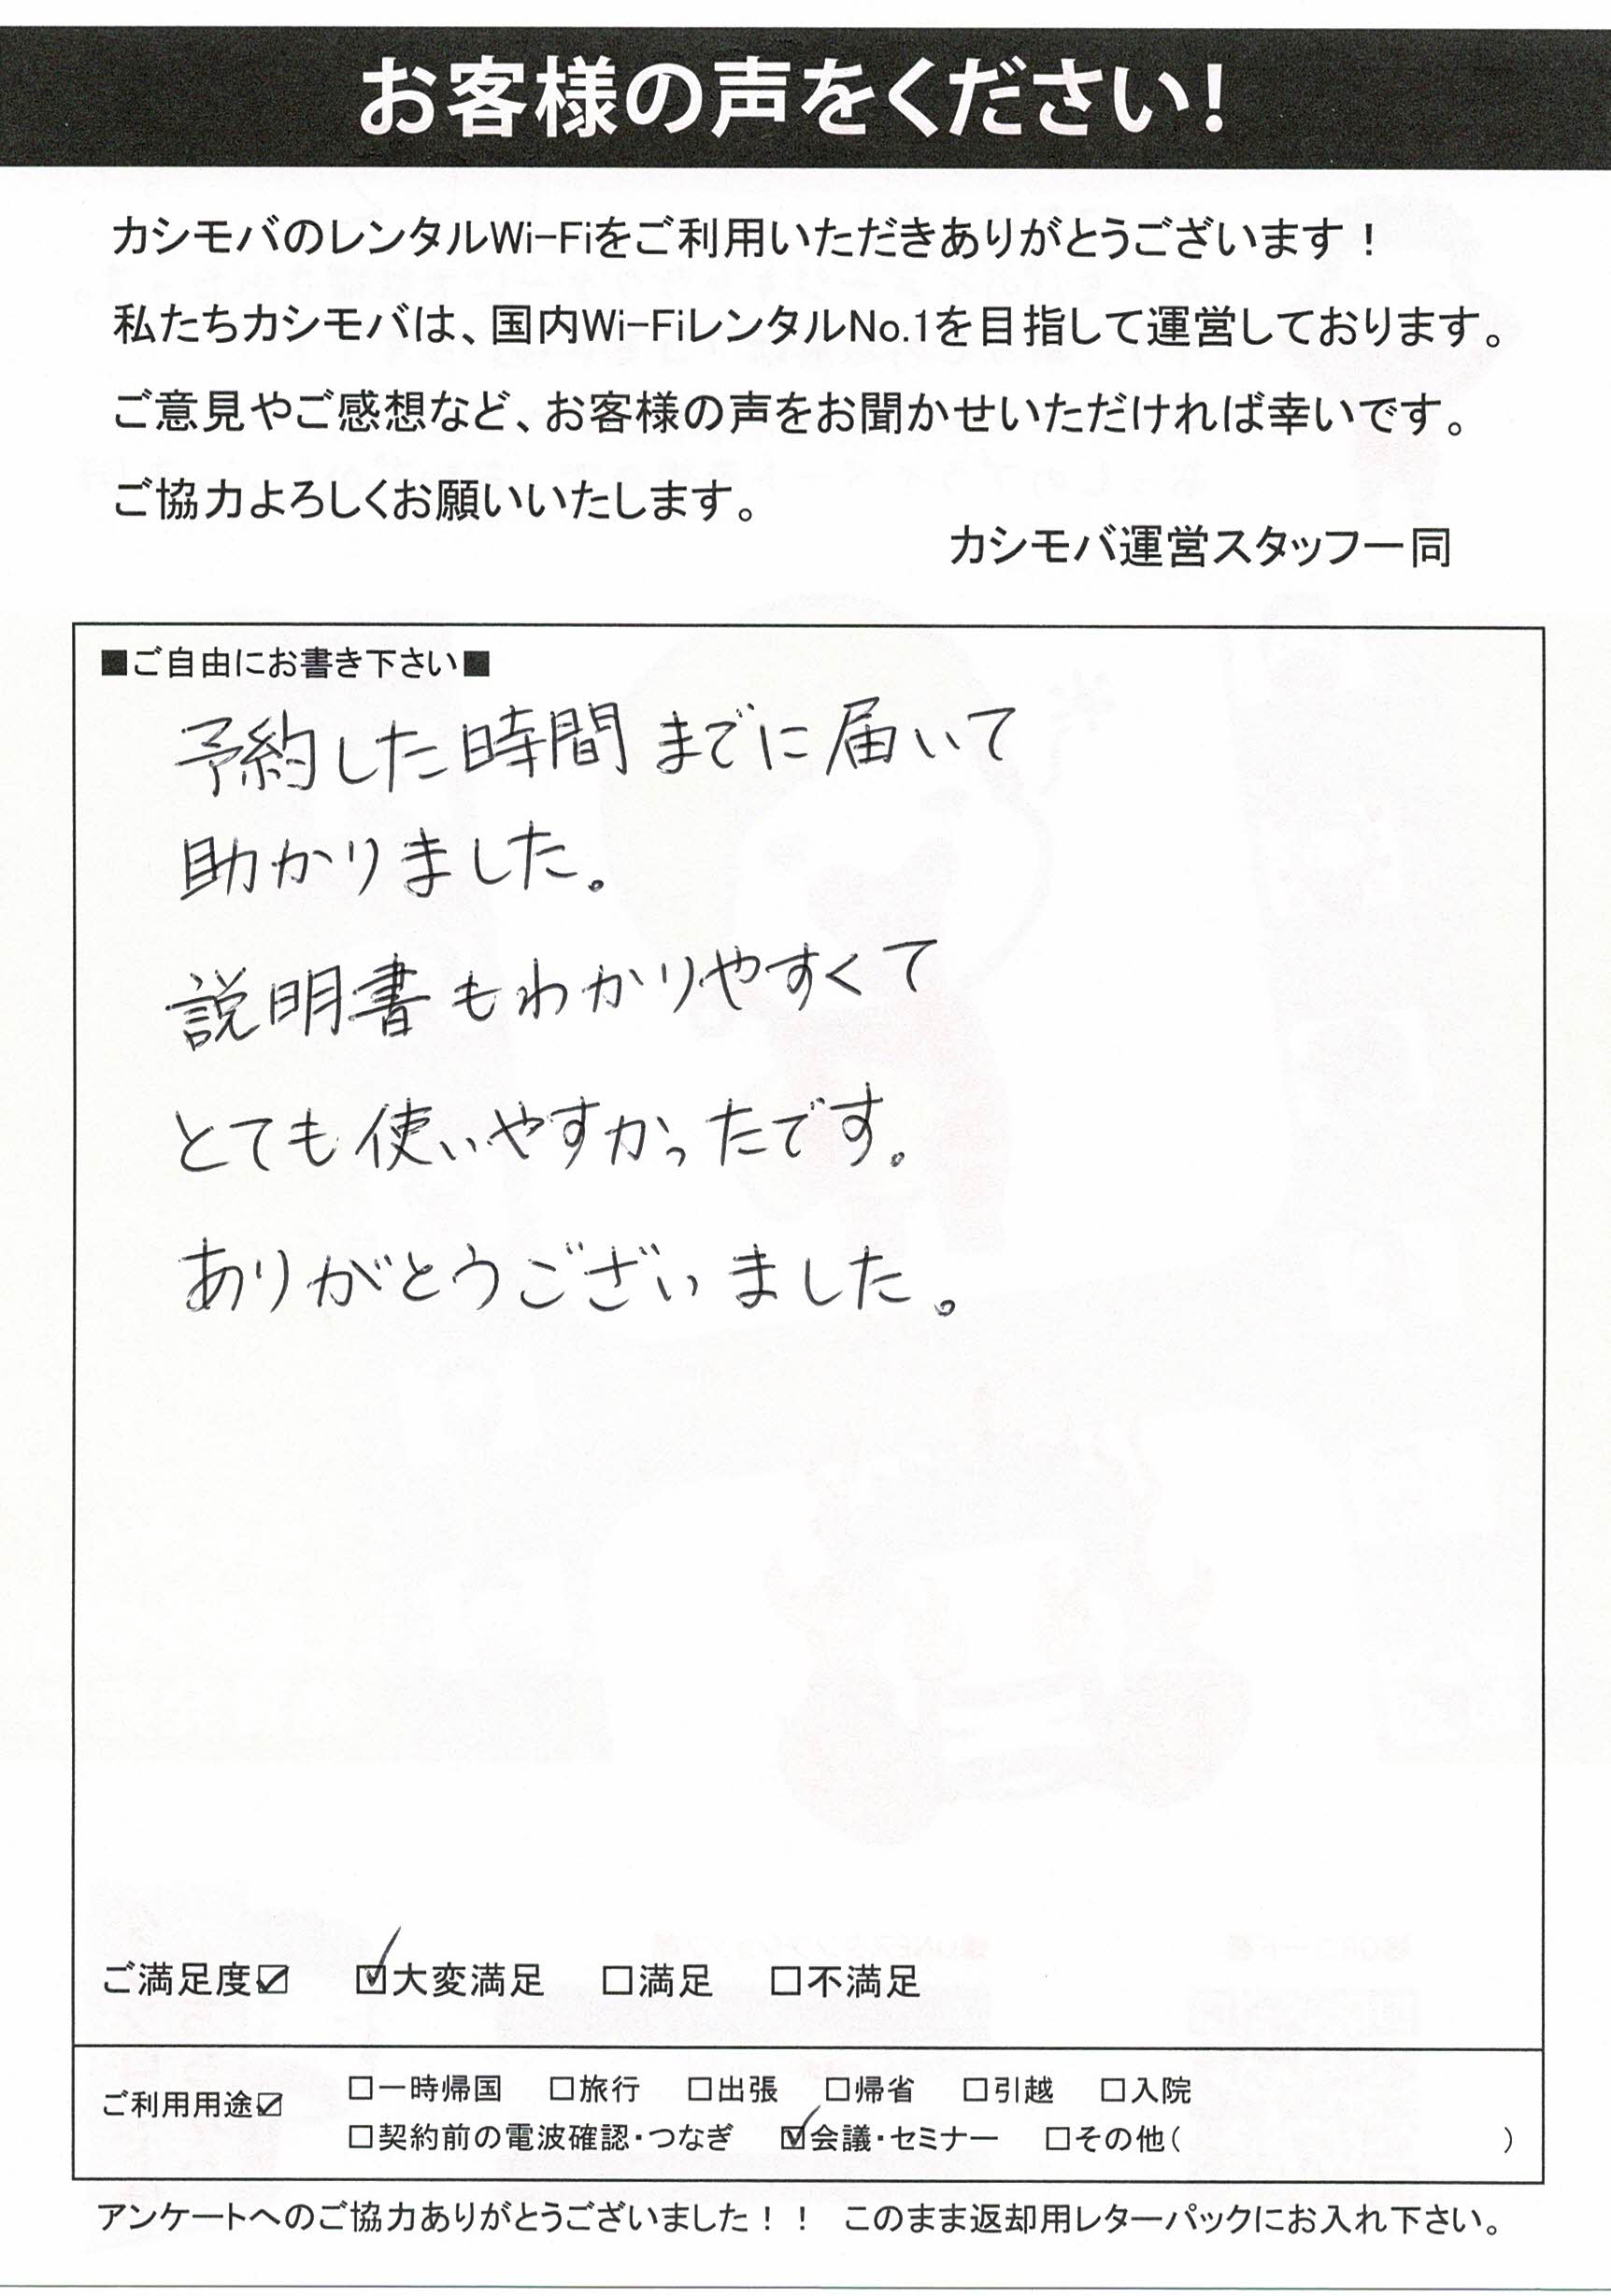 お客様の声をください！
カシモバのレンタルWi-Fiをご利用いただきありがとうございます！
私たちカシモバは、国内Wi-FiレンタルNo.1を目指して運営しております。
ご意見やご感想など、お客様の声をお聞かせいただければ幸いです。
ご協力よろしくお願いいたします。
カシモバ運営スタッフ一同
■ご自由にお書き下さい■
予約した時間までに届いて
助かりました。
説明書もわかりやすくて
とても使いやすかったです。
ありがとうございました。
ご満足度☑ ☑大変満足 □満足 □不満足
ご利用用途☑ □一時帰国 □旅行 □出張 □帰省 □引越 □入院
□契約前の電波確認・つなぎ ☑会議・セミナー □その他( )
アンケートへのご協力ありがとうございました！！ このまま返却用レターパックにお入れ下さい。